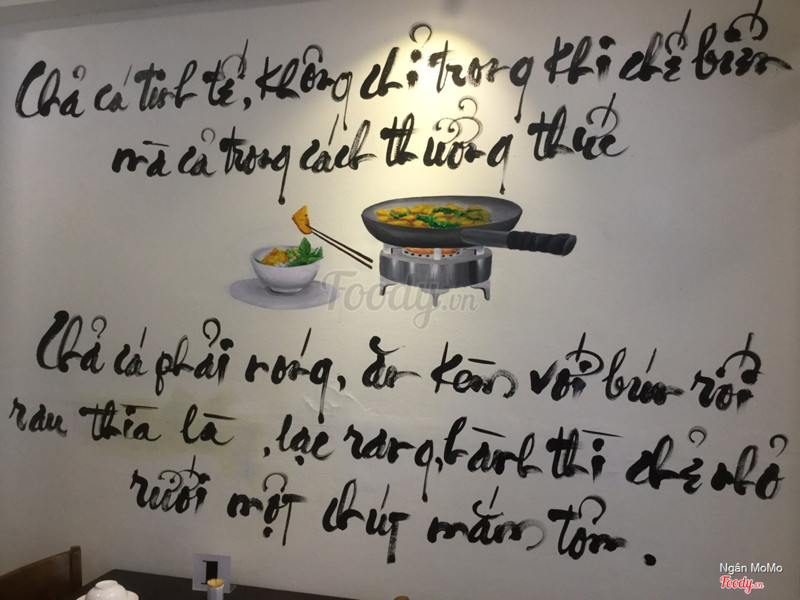 Chả cá tinh tế, không chỉ trong khi chế biến
mà cả trong cách thưởng thức
Foody.vn
Chả cá phải nóng, ăn kèm với bún rối
rau thìa là, lạc rang, hành thì chẻ nhỏ
rưới một chút mắm tôm.
1
Ngân MoMo
Foody.vn